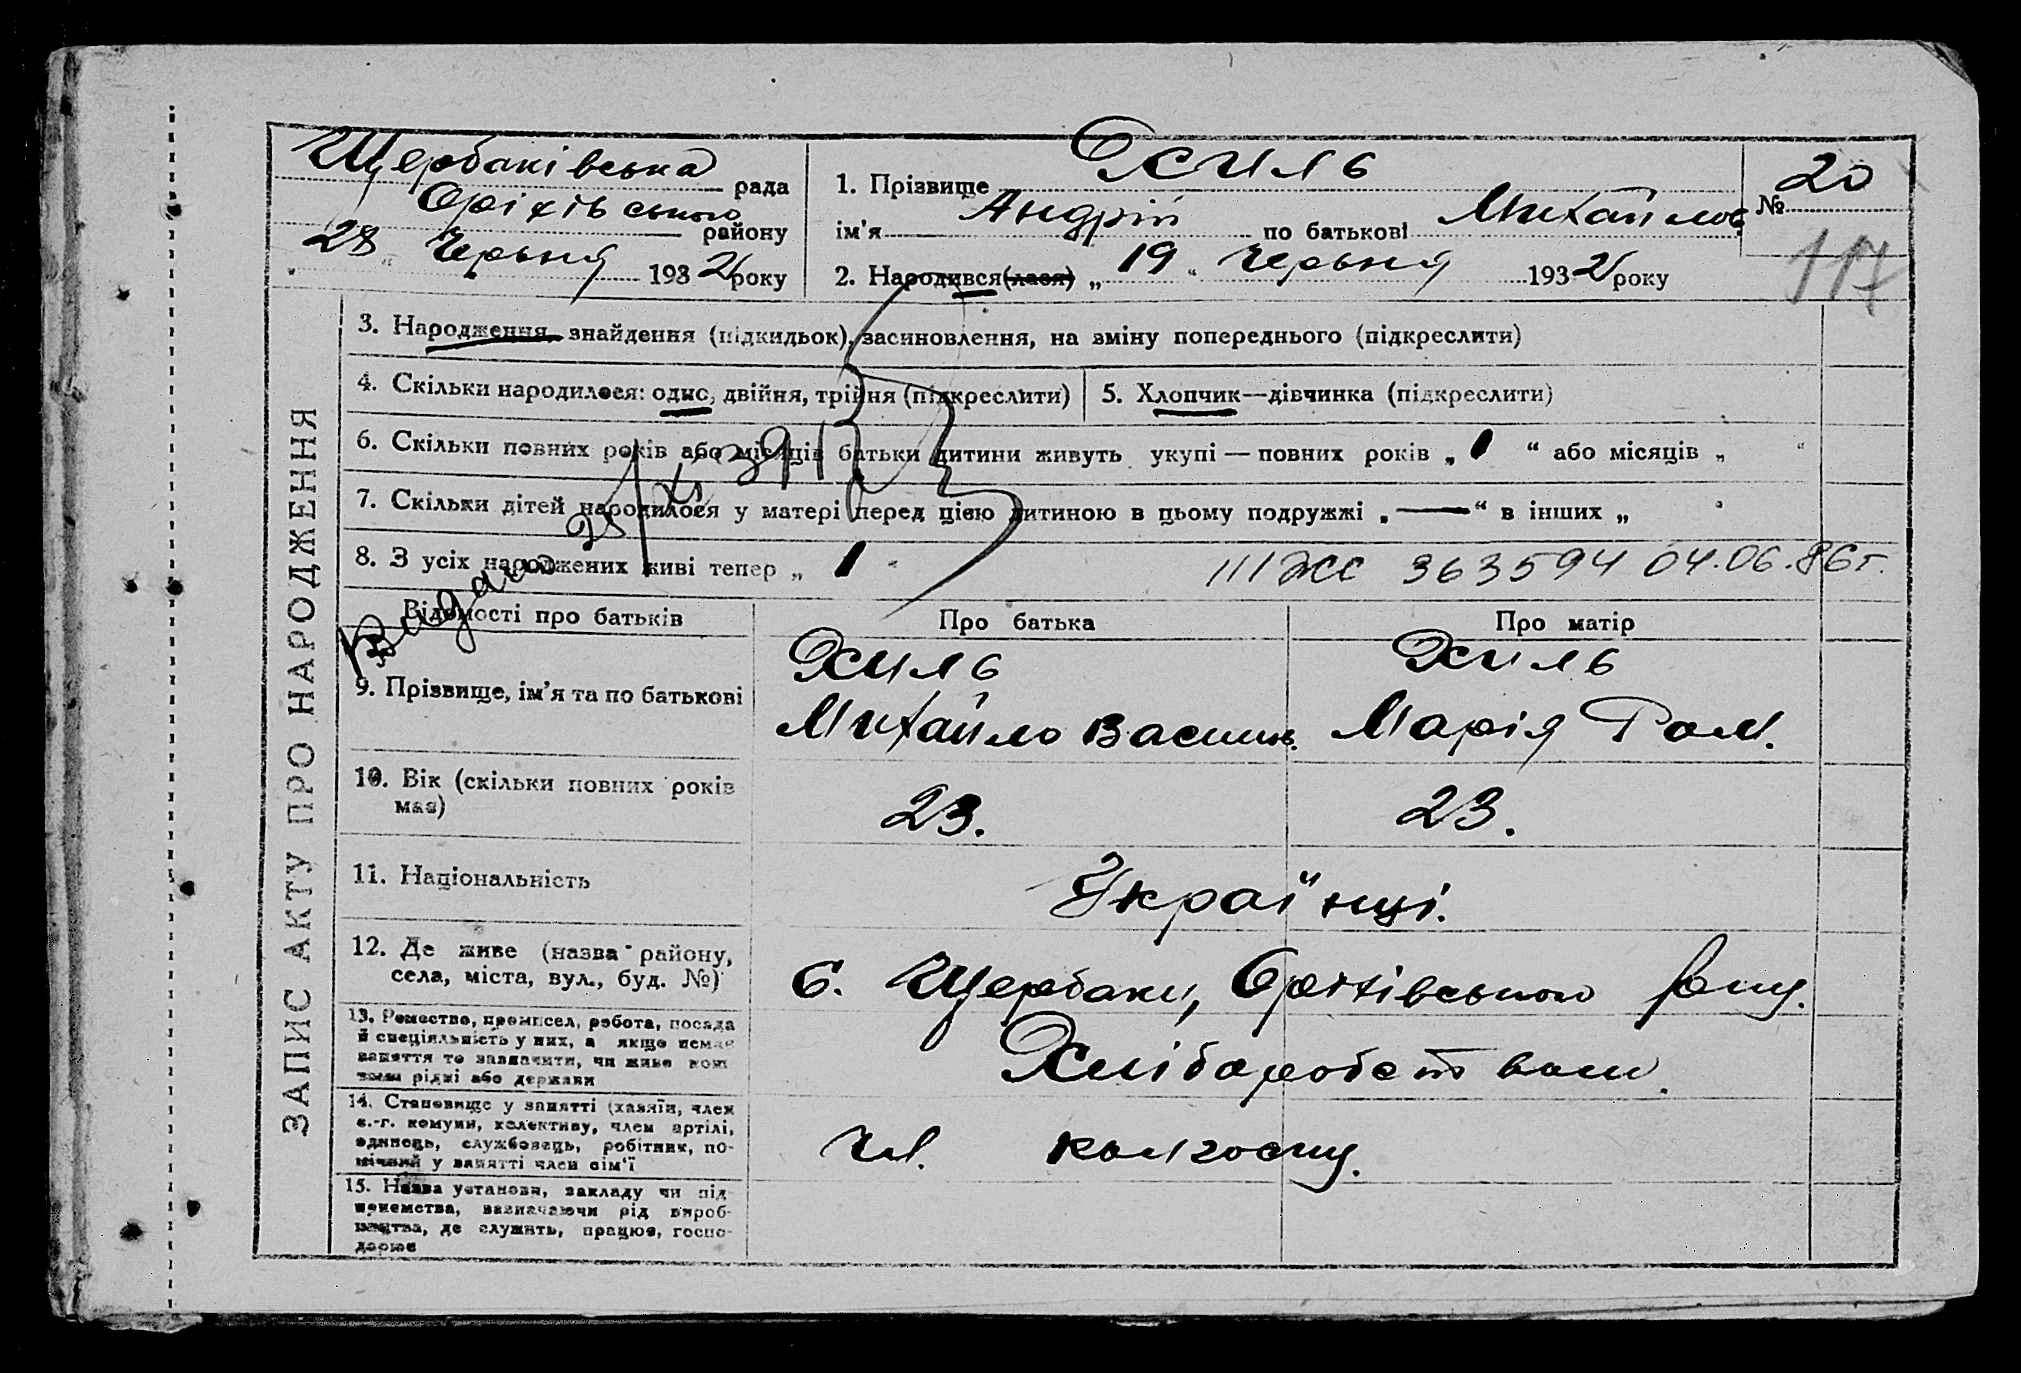 Щербаківська рада
Оріхівського району
„28“ Червня 1932 року
1. Прізвище Жиль
ім'я Андрій по батькові Михайлов
2. Народився(лася) „19“ Червня 1932 року
№ 20
117
ЗАПИС АКТУ ПРО НАРОДЖЕННЯ
3. Народження, знайдення (підкидьок), засиновлення, на зміну попереднього (підкреслити)
4. Скільки народилося: одно, двійня, трійня (підкреслити) 5. Хлопчик—дівчинка (підкреслити)
6. Скільки повних років або місяців батьки дитини живуть укупі — повних років „1“ або місяців „ “
7. Скільки дітей народилося у матері перед цією дитиною в цьому подружжі „—“ в інших „ “
8. З усіх народжених живі тепер „1“
III ЖС 363594 04.06.86г.
Відомості про батьків Про батька Про матір
9. Прізвище, ім'я та по батькові
Жиль
Михайло Василь.
Жиль
Марія Ром.
10. Вік (скільки повних років має)
23. 23.
11. Національність
Українці.
12. Де живе (назва району,
села, міста, вул., буд. №)
С. Щербаки, Оріхівського району.
13. Ремество, промисел, робота, посада
й спеціяльність у них, а якщо немає
заняття то зазначити, чи живе кош
тами рідні або держави
Хліборобством.
14. Становище у занятті (хазяїн, член
с.-г. комуни, колективу, член артілі,
одинець, службовець, робітник, по-
мічний у занятті член сім'ї
Чл. колгоспу.
15. Назва установи, закладу чи під-
приємства, зазначаючи рід вироб-
ництва, де служить, працює, госпо-
дарює